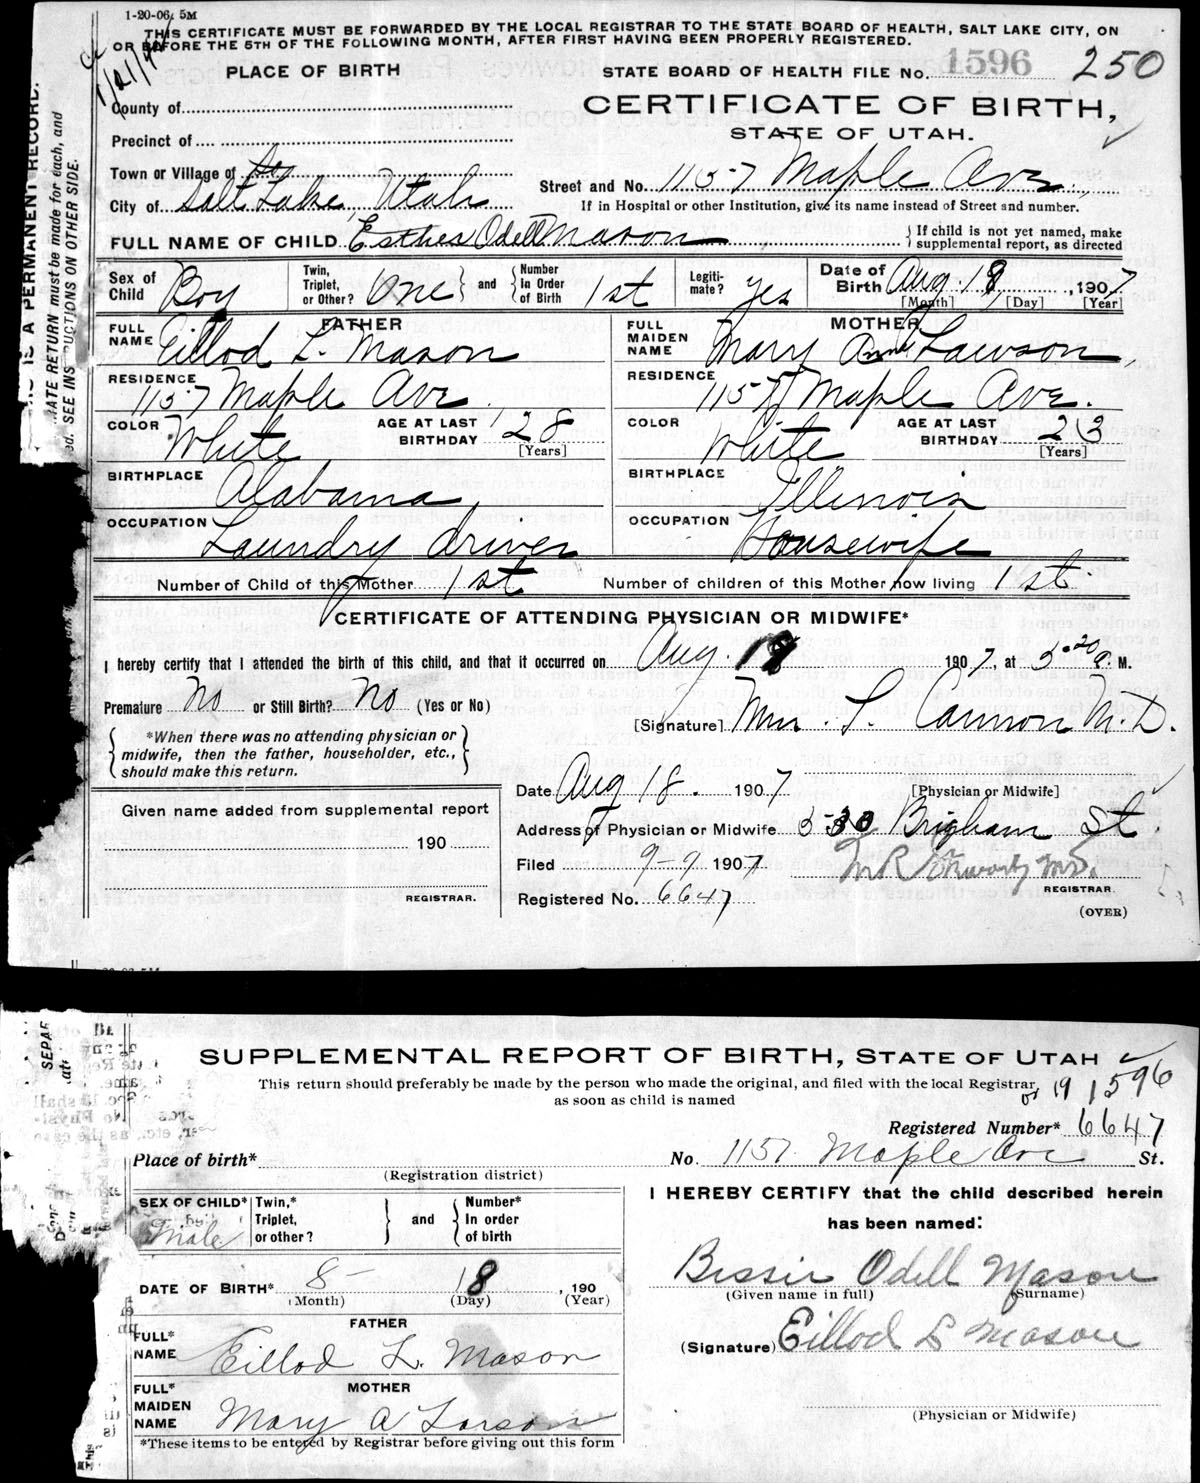 1-20-06. 5M
THIS CERTIFICATE MUST BE FORWARDED BY THE LOCAL REGISTRAR TO THE STATE BOARD OF HEALTH, SALT LAKE CITY, ON
OR BEFORE THE 5TH OF THE FOLLOWING MONTH, AFTER FIRST HAVING BEEN PROPERLY REGISTERED.
PLACE OF BIRTH
STATE BOARD OF HEALTH FILE No. 1596 250
County of
CERTIFICATE OF BIRTH,
Precinct of
STATE OF UTAH.
Town or Village of
Street and No. 1157 Maple Ave.
City of Salt Lake Utah
If in Hospital or other Institution, give its name instead of Street and number.
FULL NAME OF CHILD Esther Odell Mason
If child is not yet named, make supplemental report, as directed
Sex of Child Boy
Twin, Triplet, or Other? One and Number In Order of Birth 1st
Legitimate? yes
Date of Birth Aug. 18, 1907
[Month] [Day] [Year]
FATHER
FULL NAME Eillod L. Mason
RESIDENCE 1157 Maple Ave.
COLOR White AGE AT LAST BIRTHDAY 28
[Years]
BIRTHPLACE Alabama
OCCUPATION Laundry driver
MOTHER
FULL MAIDEN NAME Mary Ann Lawson,
RESIDENCE 1157 Maple Ave.
COLOR White AGE AT LAST BIRTHDAY 23
[Years]
BIRTHPLACE Illinois
OCCUPATION Housewife
Number of Child of this Mother 1st Number of children of this Mother now living 1st.
CERTIFICATE OF ATTENDING PHYSICIAN OR MIDWIFE*
I hereby certify that I attended the birth of this child, and that it occurred on Aug. 18 1907, at 5:20 a. M.
Premature No or Still Birth? No (Yes or No)
[Signature] Cannon M.D.
*When there was no attending physician or
midwife, then the father, householder, etc.,
should make this return.
Date Aug 18. 1907
[Physician or Midwife]
Given name added from supplemental report
190
REGISTRAR.
Address of Physician or Midwife 530 Brigham St.
Filed 9-9 1907
REGISTRAR.
Registered No. 6647
(OVER)
SUPPLEMENTAL REPORT OF BIRTH, STATE OF UTAH
This return should preferably be made by the person who made the original, and filed with the local Registrar
as soon as child is named
1596
Registered Number* 6647
Place of birth*
(Registration district)
No. 1157 Maple Ave St.
SEX OF CHILD* Male
Twin,* Triplet, or other? and Number* In order of birth
DATE OF BIRTH* 8- 18, 190
(Month) (Day) (Year)
FATHER
FULL* NAME Eillod L. Mason
MOTHER
FULL* MAIDEN NAME Mary A Larson
*These items to be entered by Registrar before giving out this form
I HEREBY CERTIFY that the child described herein
has been named:
Bessie Odell Mason
(Given name in full) (Surname)
(Signature) Eillod L Mason
(Physician or Midwife)